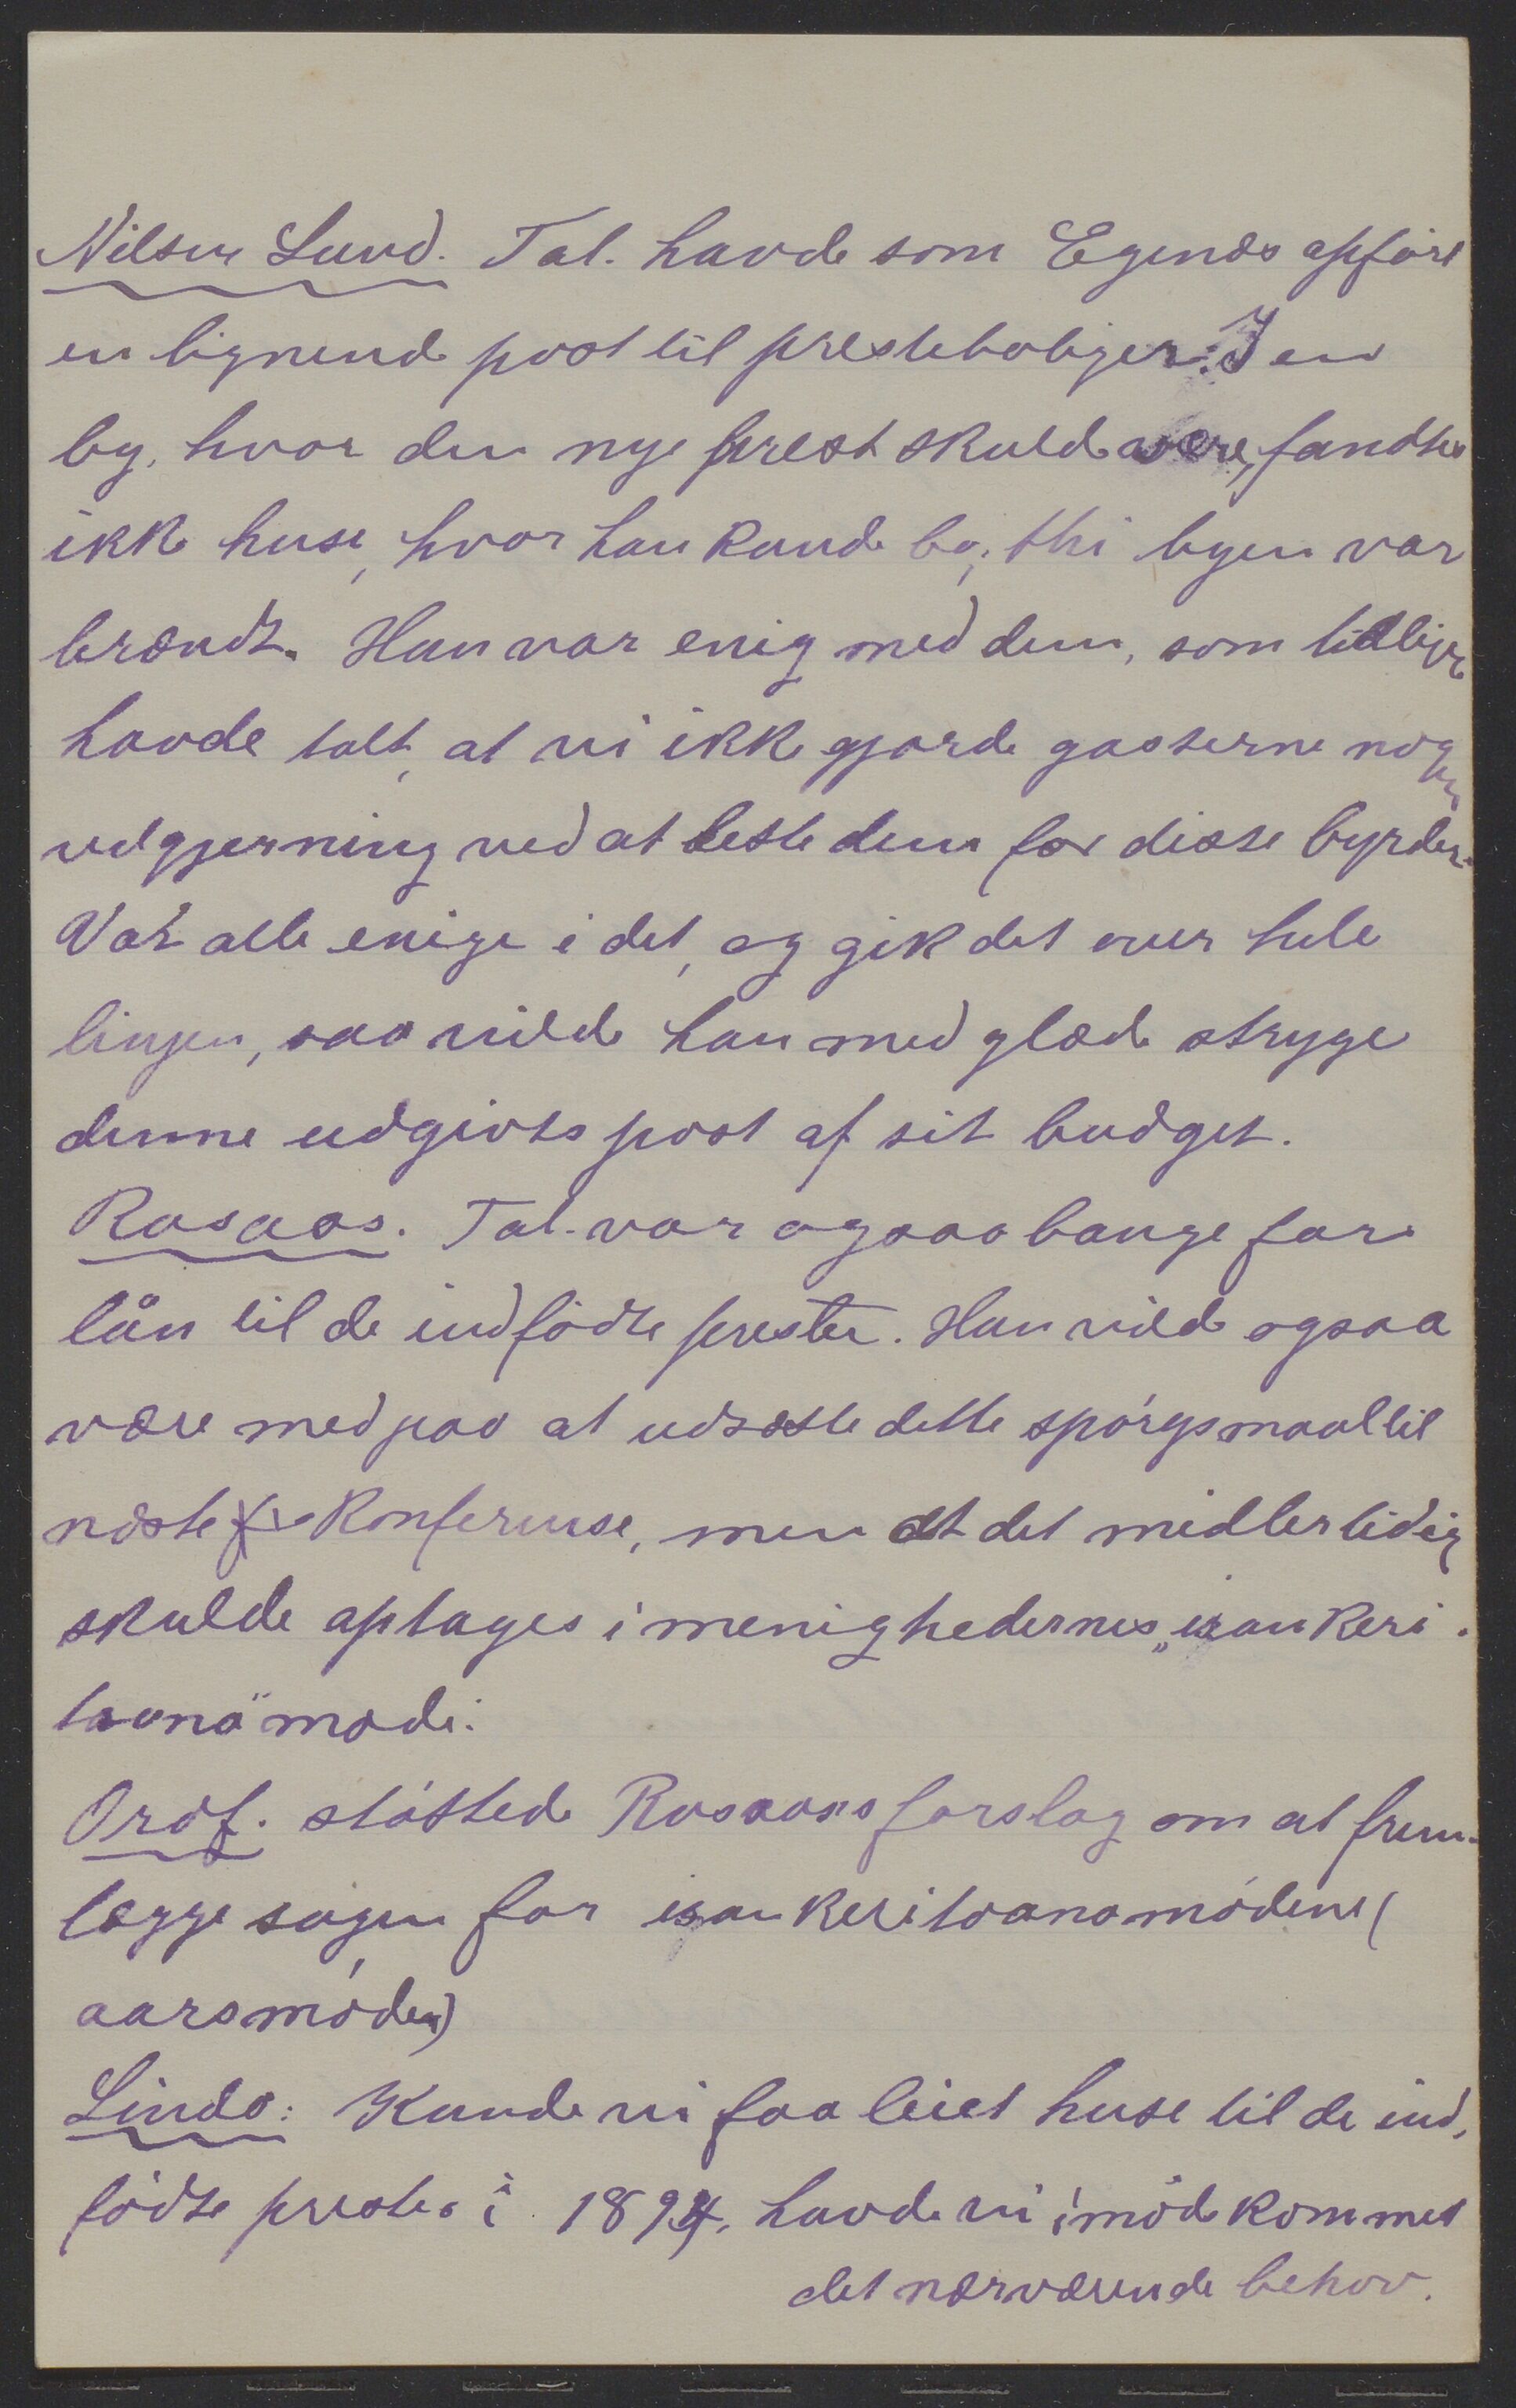 Nilsen Lund. Tal. havde som Egenæs opført
en lignende post til presteboliger. I en
by, hvor den nye prest skulde være, fandtes
ikke huse, hvor han kunde bo; thi byen var
brændt. Han var enig med dem, som tidligere
havde talt, at vi ikke gjorde gasserne nogen
velgjerning ved at lette dem for disse byrder.
Var alle enige i det, og gik det over hele
linjen, saa vilde han med glæde stryge
denne udgivtspost af sit budget.
Rosaas. Tal. var ogsaa bange for
lån til de indfødte prester. Han vilde ogsaa
være med paa at udsætte dette spørgsmaal til
næste Konferense, men at det midlertidig
skulde optages i menighedernes „isan keri-
taona" møde.
Ordf. støttede Rosaas forslag om at frem-
lægge sagen for isan keritaona mødene (
aarsmøder)
Lindø: Kunde vi faa leiet huse til de ind-
fødte prester i 1894, havde vi imødekommet
det nærværende behov.